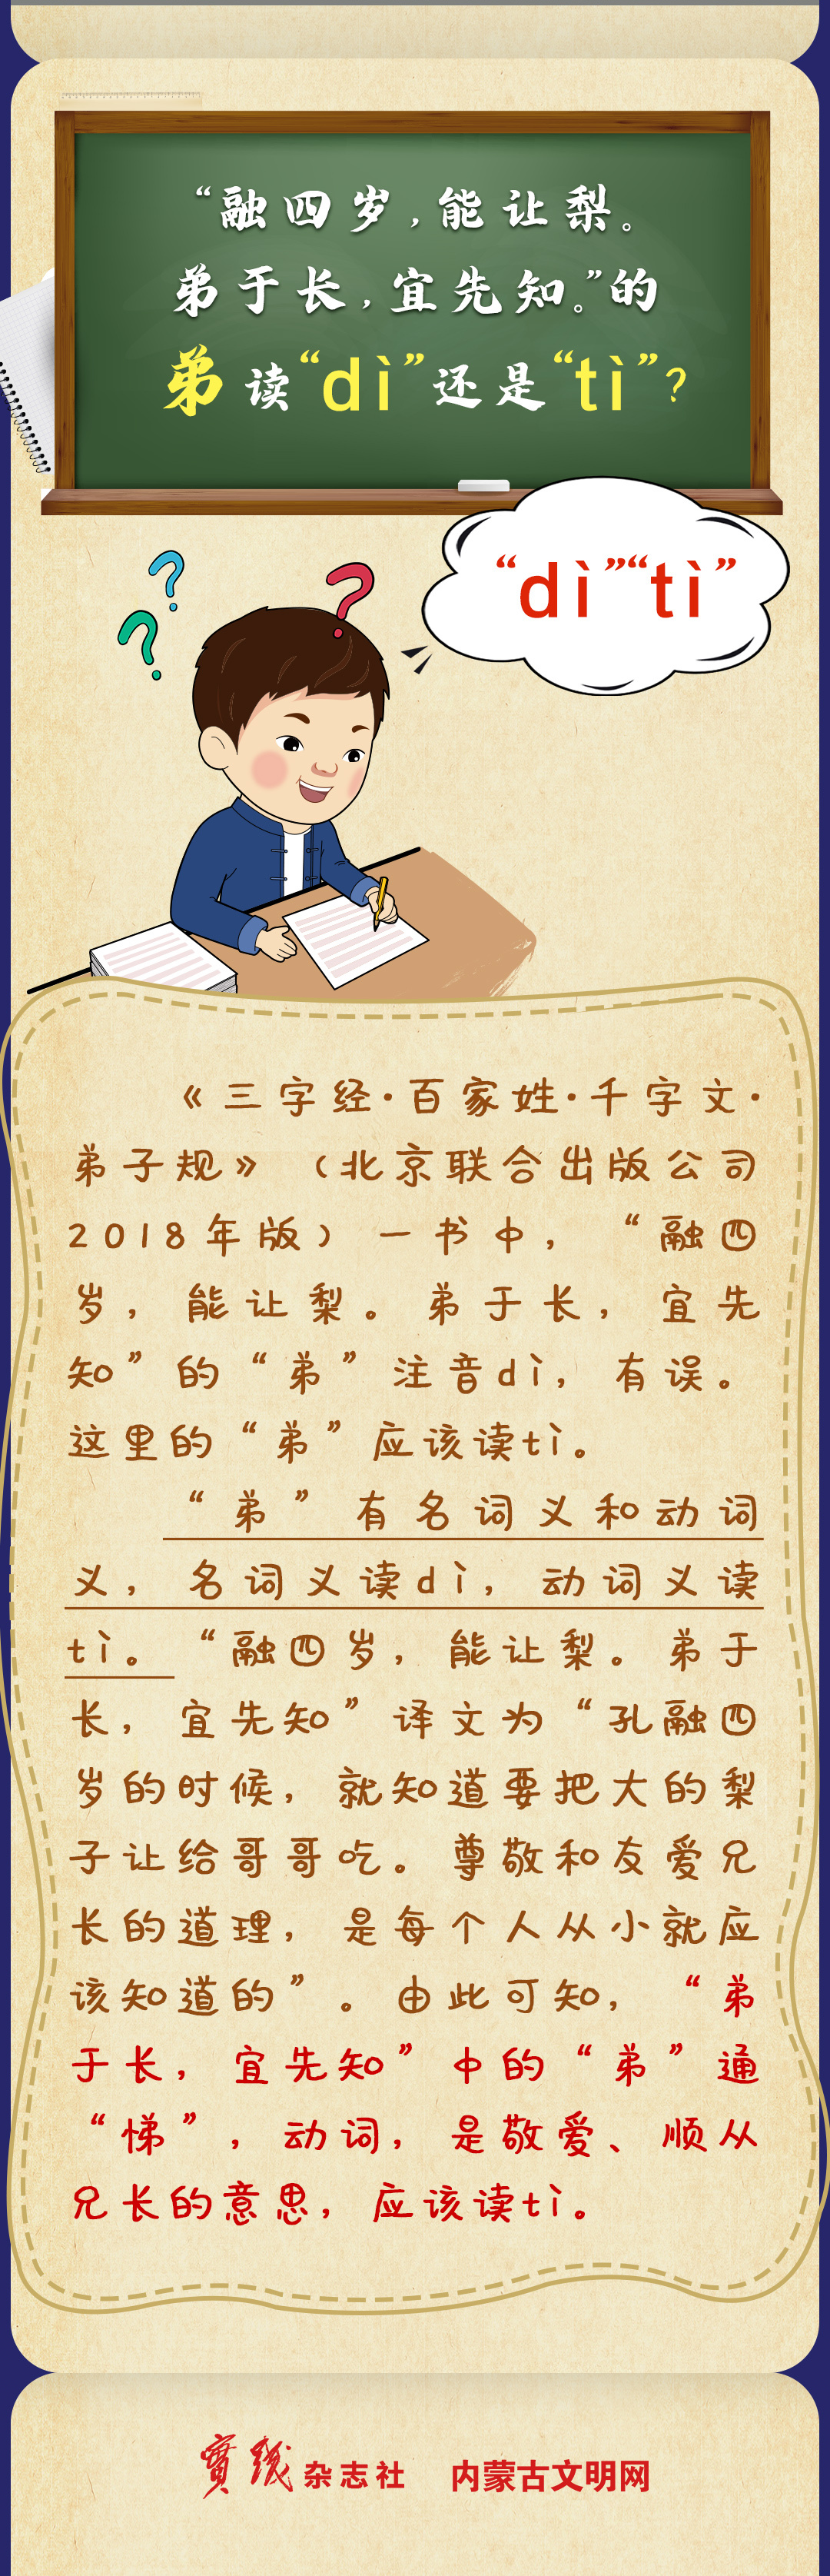 “融四岁，能让梨。
弟于长，宜先知。”的
弟读“dì”还是“tì”？
“dì”“tì”
《三字经·百家姓·千字文·
弟子规》（北京联合出版公司
2018年版）一书中，“融四
岁，能让梨。弟于长，宜先
知”的“弟”注音dì，有误。
这里的“弟”应该读tì。
“弟”有名词义和动词
义，名词义读dì，动词义读
tì。“融四岁，能让梨。弟于
长，宜先知”译文为“孔融四
岁的时候，就知道要把大的梨
子让给哥哥吃。尊敬和友爱兄
长的道理，是每个人从小就应
该知道的”。由此可知，“弟
于长，宜先知”中的“弟”通
“悌”，动词，是敬爱、顺从
兄长的意思，应该读tì。
實践杂志社 内蒙古文明网